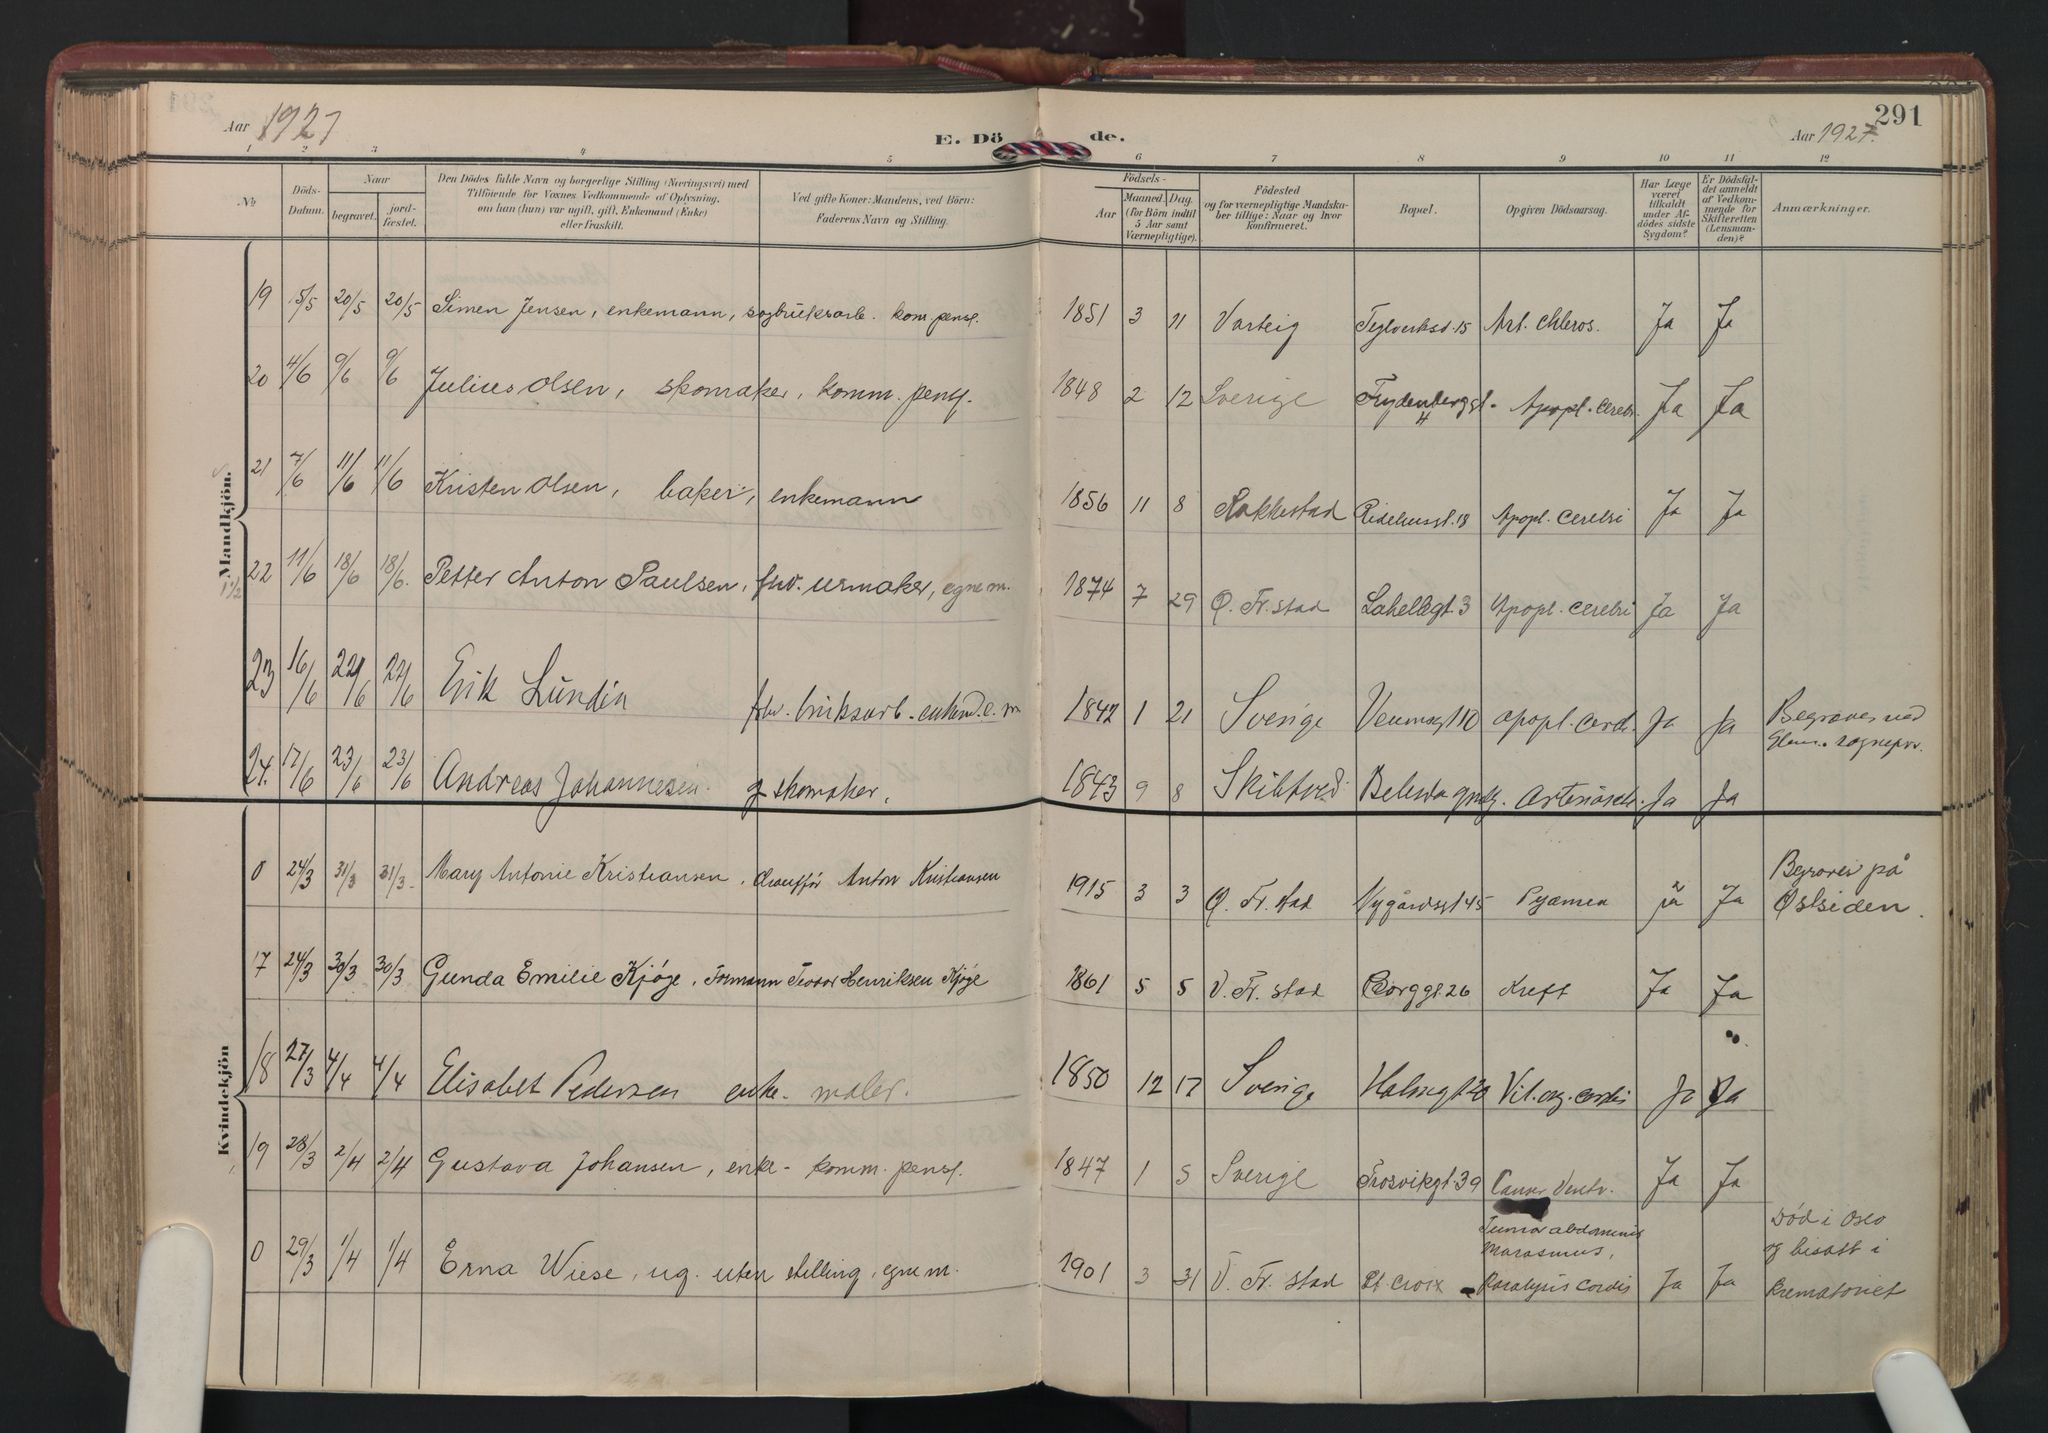 291
Aar 1927
E. Dö de.
Aar 1927.
1 2 3 4 5 6 7 8 9 10 11 12
No.
Döds-Datum.
Naar
begravet.
jord-fæstet.
Den Dödes fulde Navn og borgerlige Stilling (Næringsvei) med
Tilföiende for Voxnes Vedkommende af Oplysning,
om han (hun) var ugift, gift, Enkemand (Enke)
eller fraskilt.
Ved gifte Koner: Mandens, ved Börn:
Faderens Navn og Stilling.
Födsels-
Aar
Maaned. Dag.
(for Börn indtil
5 Aar samt
Værnepligtige).
Födested
og for værnepligtige Mandska-
ber tillige: Naar og hvor
konfirmeret.
Bopæl.
Opgiven Dödsaarsag.
Har Læge
været
tilkaldt
under Af-
dödes sidste
Sygdom?
Er Dödsfal-
det anmeldt
af Vedkom-
mende for
Skifteretten
(Lensman-
den)?
Anmærkninger.
Mandkjön.
19 5/5 20/5 20/5 Simen Jensen, enkemann, sagbruksarb. kom. pensj. 1851 3 11 Varteig Teglverksv. 15 Art. chleros. Ja Ja
20 4/6 9/6 9/6 Julius Olsen, skomaker, komm. pensj. 1848 2 12 Sverige Frydenberggt. 4 Apopl. cerebr. Ja Ja
21 7/6 11/6 11/6 Kristen Olsen, baker, enkemann 1856 11 8 Rakkestad Ridehusgt. 18 Apopl. cerebri Ja Ja
22 11/6 18/6 18/6. Petter Anton Paulsen, fhv. urmaker, egne m. 1874 7 29 Ø. Fr. stad Lahellegt. 3 Apopl. cerebri Ja Ja
23 16/6 22/6 22/6 Erik Lundin fhv. bruksarb. enkm. e. m 1842 1 21 Sverige Veumsgt 10 apopl. cerebr. Ja Ja Begraves ved
Glem. sognepr.
24. 17/6 23/6 23/6 Andreas Johannesen. g skomaker. 1843 9 8 Skibtved Ja Ja
Kvindekjön
0 24/3 31/3 31/3 Mary Antonie Kristiansen. chauffør Anton Kristiansen 1915 3 3 Ø. Fr. stad Nygårdsgt 45 Pyæmea ja Ja Begraves på
Østsiden.
17 24/3 30/3 30/3 Gunda Emilie Kjøge. Formann Teodor Henriksen Kjøge 1861 5 5 V. Fr. stad Borggt. 26 Kreft Ja Ja
18 27/3 4/4 4/4 Elisabet Pedersen enke. maler. 1850 12 17 Sverige Holmegt 20 Vit. org. cordis Ja Ja
19 28/3 2/4 2/4 Gustava Johansen, enke - komm. pensj. 1847 1 5 Sverige Trosvikgt. 39 Cancer Ventr. Ja Ja
0 29/3 1/4 1/4 Erna Wiese, ug. uten stilling, egne m. 1901 3 31 V. Fr. stad St. Croix Tumor abdominis
Marasmus,
Paralysis cordis Ja Ja Død i Oslo
og bisatt i
Krematoriet